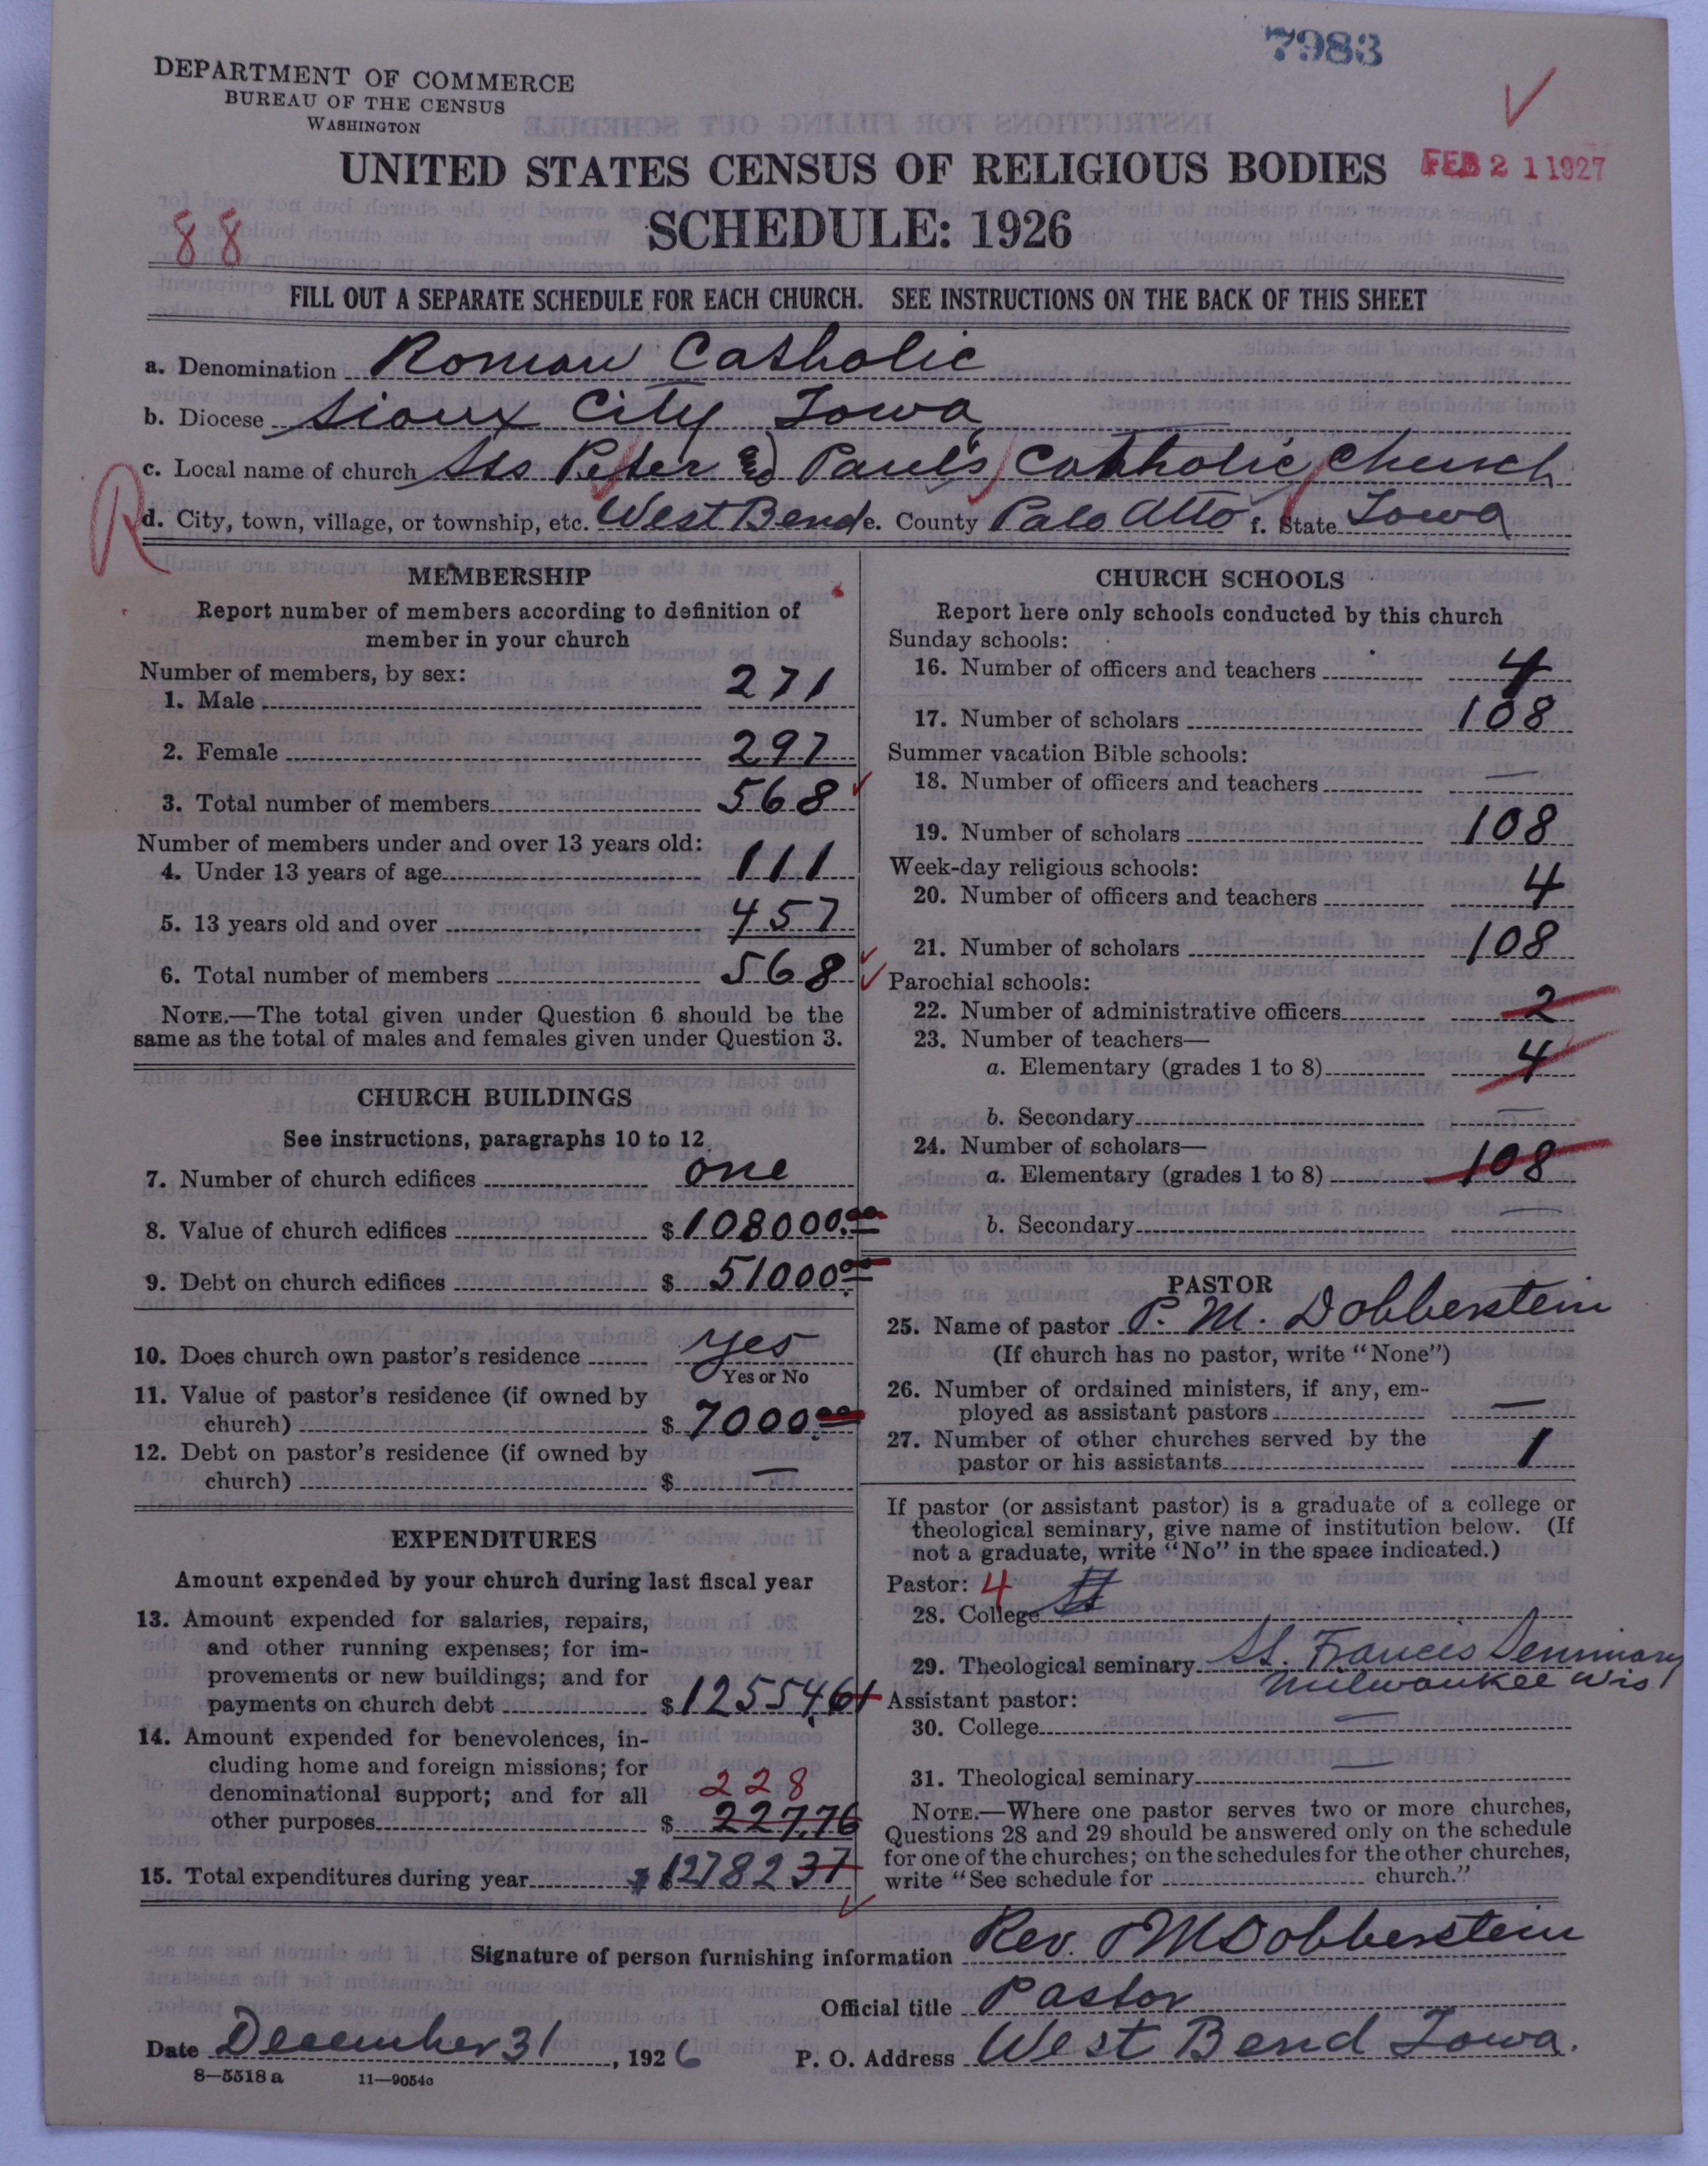 7983
DEPARTMENT OF COMMERCE
BUREAU OF THE CENSUS
WASHINGTON
UNITED STATES CENSUS OF RELIGIOUS BODIES
FEB 21 1927
SCHEDULE: 1926
88
FILL OUT A SEPARATE SCHEDULE FOR EACH CHURCH. SEE INSTRUCTIONS ON THE BACK OF THIS SHEET
a. Denomination Roman Catholic
b. Diocese Sioux City Iowa
c. Local name of church Sts Peter & Paul's Catholic Church
R
d. City, town, village, or township, etc. West Bend e. County Palo Alto f. State Iowa
MEMBERSHIP
Report number of members according to definition of
member in your church
Number of members, by sex:
1. Male 271
2. Female 297
3. Total number of members 568
Number of members under and over 13 years old:
4. Under 13 years of age 111
5. 13 years old and over 457
6. Total number of members 568
NOTE.—The total given under Question 6 should be the
same as the total of males and females given under Question 3.
CHURCH BUILDINGS
See instructions, paragraphs 10 to 12
7. Number of church edifices one
8. Value of church edifices $108000.00
9. Debt on church edifices $51000.00
10. Does church own pastor's residence yes
Yes or No
11. Value of pastor's residence (if owned by
church) $7000.00
12. Debt on pastor's residence (if owned by
church) $ —
EXPENDITURES
Amount expended by your church during last fiscal year
13. Amount expended for salaries, repairs,
and other running expenses; for im-
provements or new buildings; and for
payments on church debt $12554.61
14. Amount expended for benevolences, in-
cluding home and foreign missions; for
denominational support; and for all
228
other purposes $227.76
15. Total expenditures during year $1278237
CHURCH SCHOOLS
Report here only schools conducted by this church
Sunday schools:
16. Number of officers and teachers 4
17. Number of scholars 108
Summer vacation Bible schools:
18. Number of officers and teachers —
19. Number of scholars 108
Week-day religious schools:
20. Number of officers and teachers 4
21. Number of scholars 108
Parochial schools:
22. Number of administrative officers 2
23. Number of teachers—
a. Elementary (grades 1 to 8) 4
b. Secondary —
24. Number of scholars—
a. Elementary (grades 1 to 8) 108
b. Secondary —
PASTOR
25. Name of pastor P. M. Dobberstein
(If church has no pastor, write "None")
26. Number of ordained ministers, if any, em-
ployed as assistant pastors —
27. Number of other churches served by the
pastor or his assistants 1
If pastor (or assistant pastor) is a graduate of a college or
theological seminary, give name of institution below. (If
not a graduate, write "No" in the space indicated.)
Pastor: 4
28. College St
29. Theological seminary St. Frances Seminary
Milwaukee Wis
Assistant pastor:
30. College —
31. Theological seminary —
NOTE.—Where one pastor serves two or more churches,
Questions 28 and 29 should be answered only on the schedule
for one of the churches; on the schedules for the other churches,
write "See schedule for church."
Signature of person furnishing information Rev. P M Dobberstein
Official title Pastor
Date December 31, 1926 P. O. Address West Bend Iowa.
8—5518 a 11—9054c